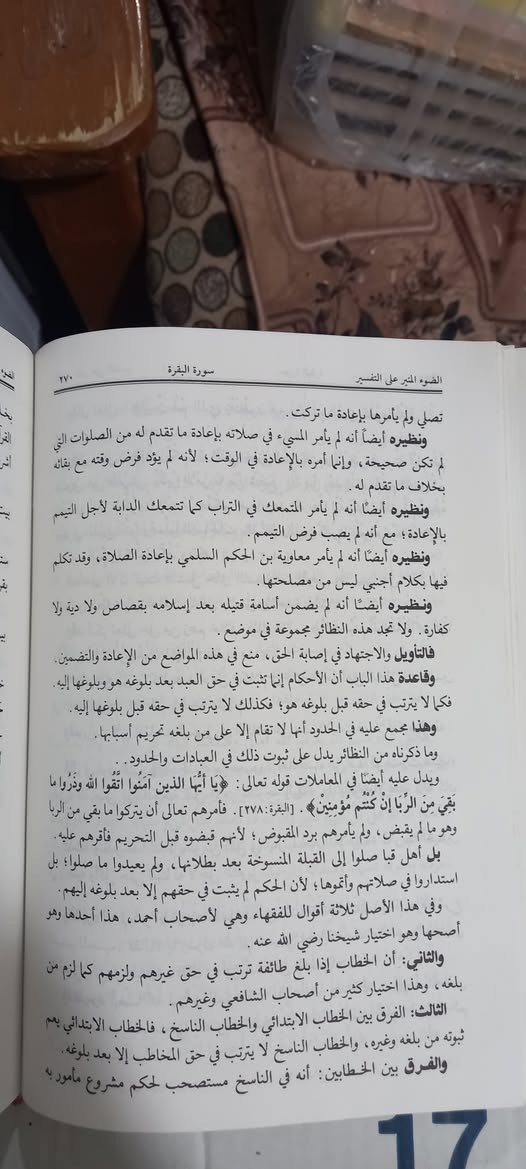 الضوء المنير على التفسير
سورة البقرة
٢٧٠
تصلي ولم يأمرها بإعادة ما تركت.
ونظيره أيضاً أنه لم يأمر المسيء في صلاته بإعادة ما تقدم له من الصلوات التي
لم تكن صحيحة، وإنما أمره بالإعادة في الوقت؛ لأنه لم يؤد فرض وقته مع بقائه
بخلاف ما تقدم له.
ونظيره أيضًا أنه لم يأمر المتمعك في التراب كما تتمعك الدابة لأجل التيمم
بالإعادة؛ مع أنه لم يصب فرض التيمم.
ونظيره أيضًا أنه لم يأمر معاوية بن الحكم السلمي بإعادة الصلاة، وقد تكلم
فيها بكلام أجنبي ليس من مصلحتها.
ونظيره أيضًا أنه لم يضمن أسامة قتيله بعد إسلامه بقصاص ولا دية ولا
كفارة. ولا تجد هذه النظائر مجموعة في موضع.
فالتأويل والاجتهاد في إصابة الحق، منع في هذه المواضع من الإعادة والتضمين.
وقاعدة هذا الباب أن الأحكام إنما تثبت في حق العبد بعد بلوغه هو وبلوغها إليه.
فكما لا يترتب في حقه قبل بلوغه هو؛ فكذلك لا يترتب في حقه قبل بلوغها إليه.
وهذا مجمع عليه في الحدود أنها لا تقام إلا على من بلغه تحريم أسبابها.
وما ذكرناه من النظائر يدل على ثبوت ذلك في العبادات والحدود. .
ويدل عليه أيضًا في المعاملات قوله تعالى: ﴿يَا أَيُّهَا الذين آمَنُوا اتَّقُوا الله وذَرُوا ما
بَقِيَ مِنَ الرِّبَا إنْ كُنْتُم مُؤْمِنِيْنَ﴾. [البقرة:٢٧٨]. فأمرهم تعالى أن يتركوا ما بقي من الربا
وهو ما لم يقبض، ولم يأمرهم برد المقبوض؛ لأنهم قبضوه قبل التحريم فأقرهم عليه.
بل أهل قبا صلوا إلى القبلة المنسوخة بعد بطلانها، ولم يعيدوا ما صلوا؛ بل
استداروا في صلاتهم وأتموها؛ لأن الحكم لم يثبت في حقهم إلا بعد بلوغه إليهم.
وفي هذا الأصل ثلاثة أقوال للفقهاء وهي لأصحاب أحمد، هذا أحدها وهو
أصحها وهو اختيار شيخنا رضي الله عنه.
والثاني: أن الخطاب إذا بلغ طائفة ترتب في حق غيرهم ولزمهم كما لزم من
بلغه، وهذا اختيار كثير من أصحاب الشافعي وغيرهم.
الثالث: الفرق بين الخطاب الابتدائي والخطاب الناسخ، فالخطاب الابتدائي يعم
ثبوته من بلغه وغيره، والخطاب الناسخ لا يترتب في حق المخاطب إلا بعد بلوغه.
والفرق بين الخطابين: أنه في الناسخ مستصحب لحكم مشروع مأمور به
17